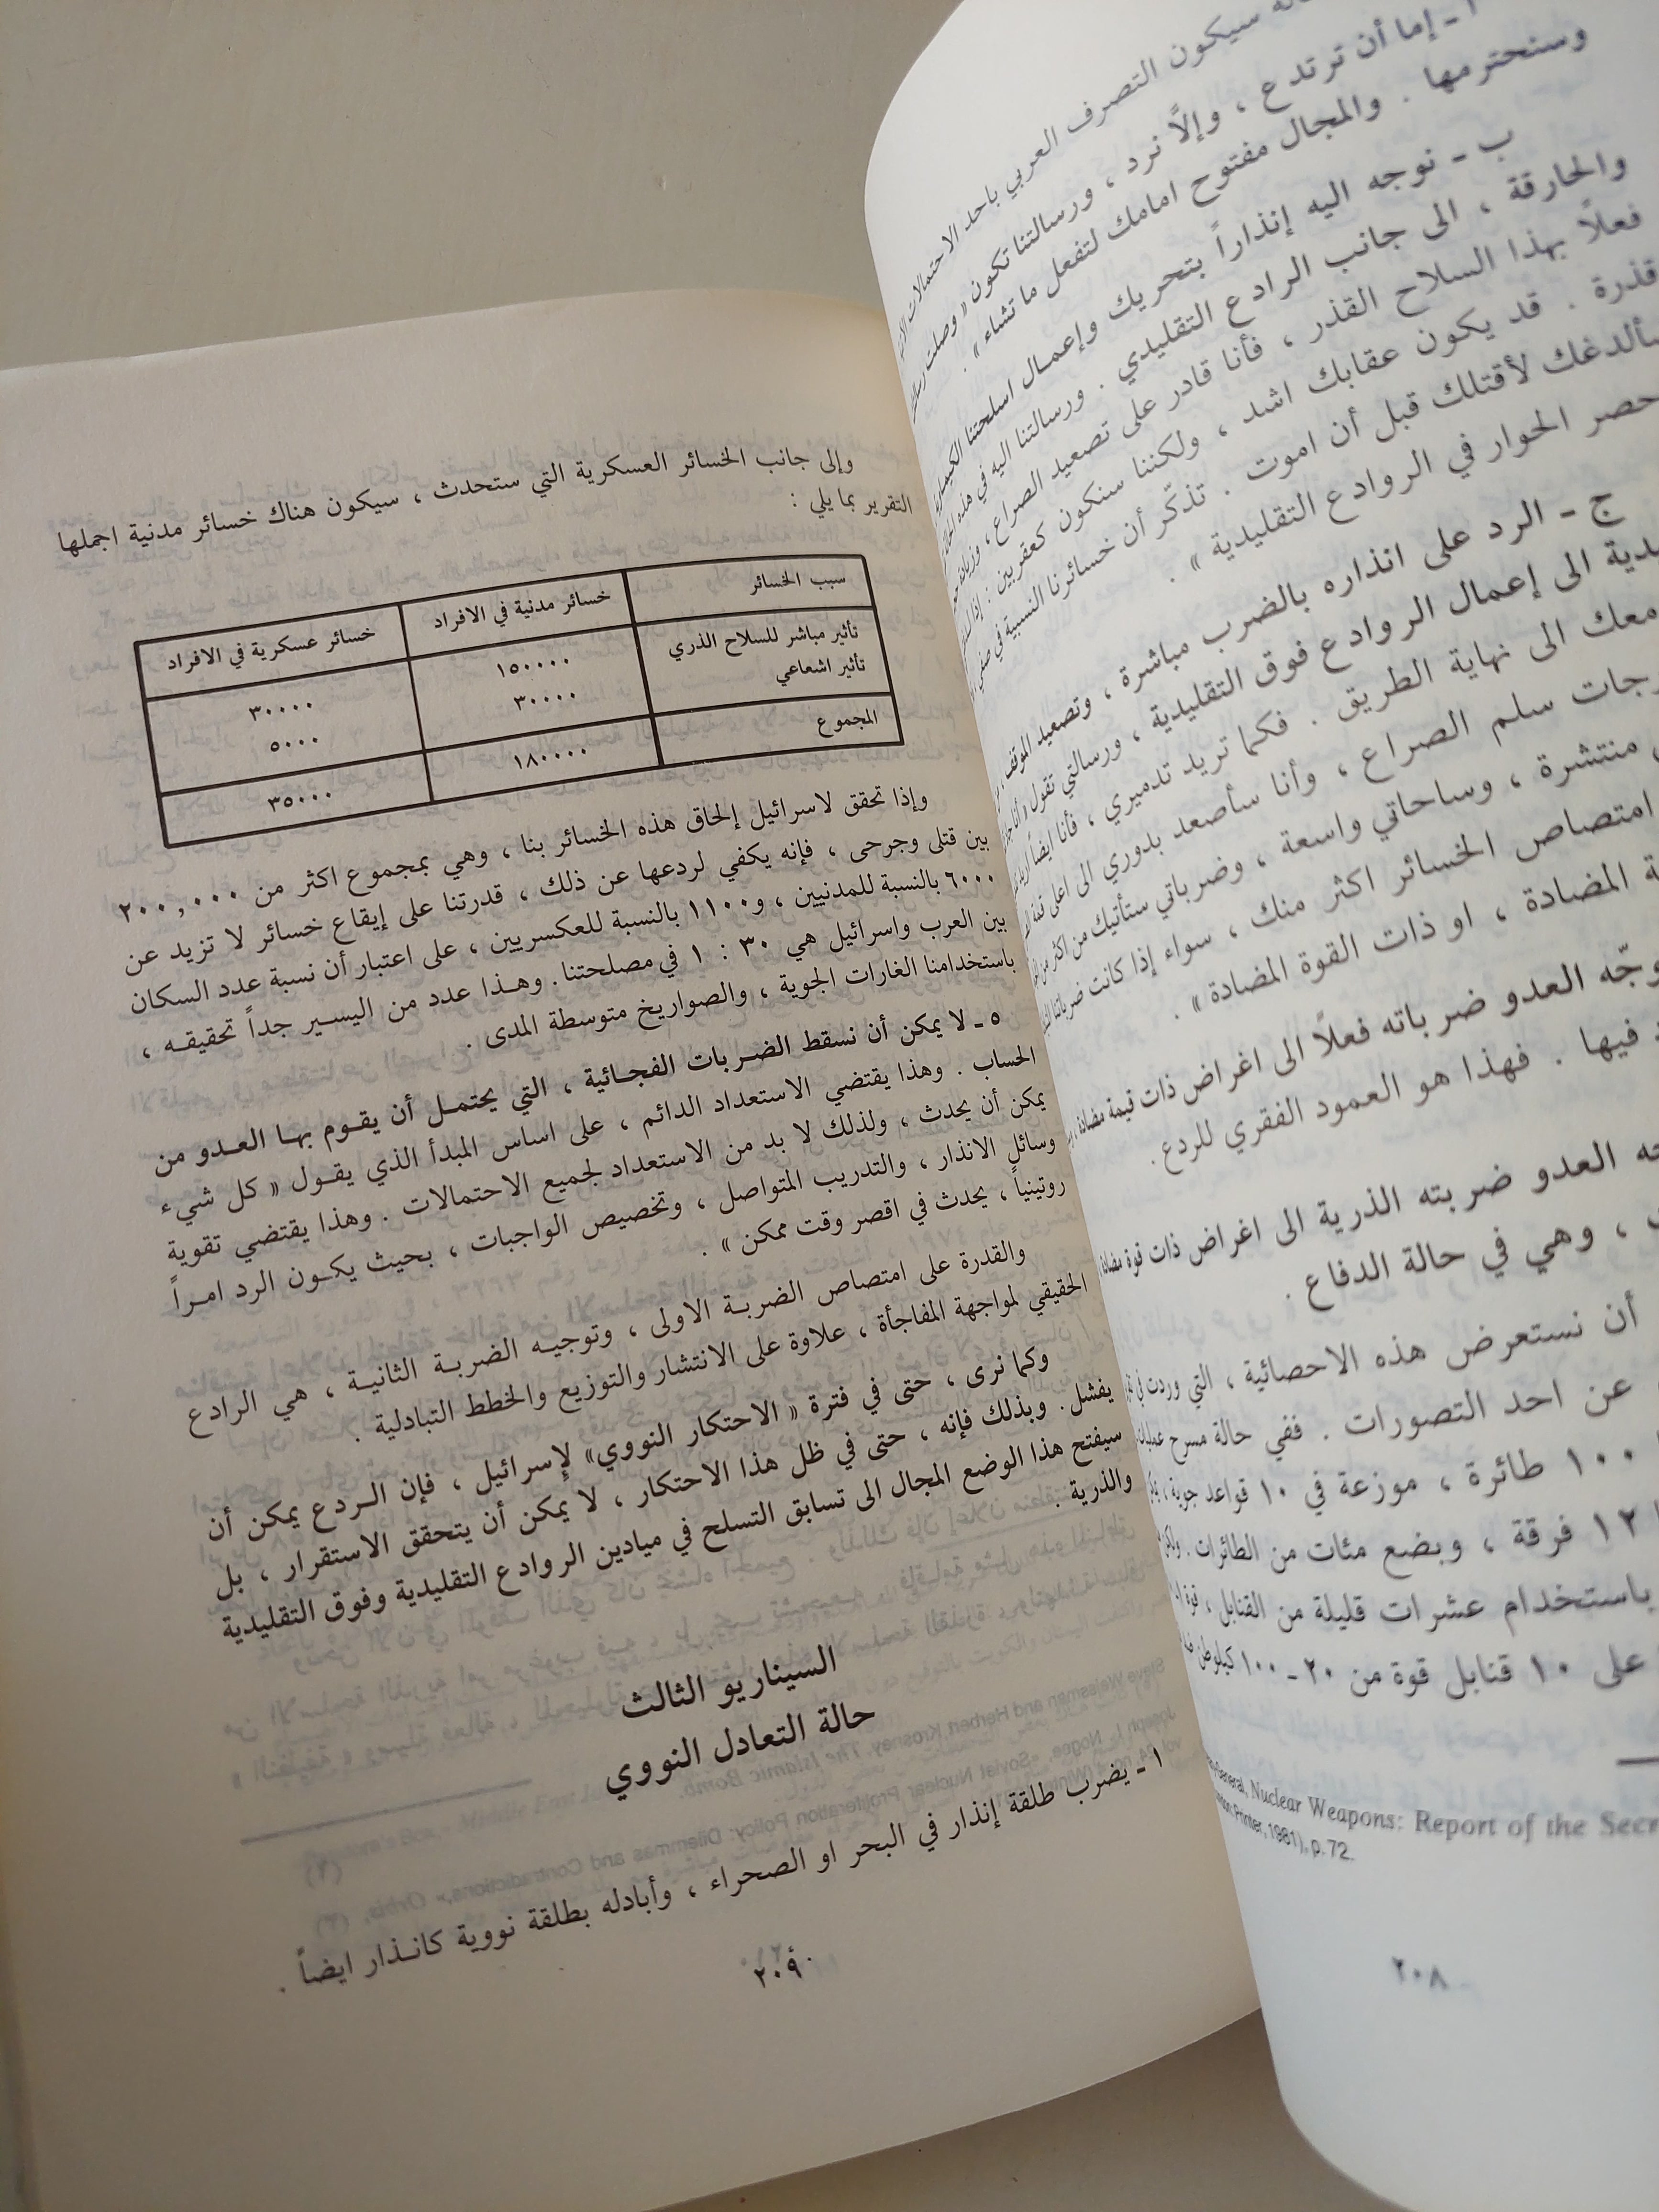 سيكون التصرف العربي باحد الاحتمالات
إما أن ترتدع ، وإلاَّ نرد ، ورسالتنا تكون « وصلت
وسنحترمها . والمجال مفتوح امامك لتفعل ما تشاء » .
ب ـ نوجه اليه إنذاراً بتحريك وإعمال اسلحتنا الكيماوية
والحارقة ، الى جانب الرادع التقليدي . ورسالتنا اليه في هذه
فعلاً بهذا السلاح القذر ، فأنا قادر على تصعيد الصراع ،
قذرة . قد يكون عقابك اشد ، ولكننا سنكون كعقربين : إذا
سألدغك لأقتلك قبل أن اموت . تذكّر أن خسائرنا النسبية في
حصر الحوار في الروادع التقليدية » .
ج ـ الرد على انذاره بالضرب مباشرة ، وتصعيد الموقف
الى إعمال الروادع فوق التقليدية ، ورسالتي تقول
معك الى نهاية الطريق . فكما تريد تدميري ، فأنا ايضاً اريد
سلم الصراع ، وأنا سأصعد بدوري الى اعلى
منتشرة ، وساحاتي واسعة ، وضرباتي ستأتيك من اكثر من
امتصاص الخسائر اكثر منك ، سواء إذا كانت ضرباتنا
المضادة ، او ذات القوة المضادة » .
العدو ضرباته فعلاً الى اغراض ذات قيمة مضادة ،
فيها . فهذا هو العمود الفقري للردع .
العدو ضربته الذرية الى اغراض ذات قوة مضادة
، وهي في حالة الدفاع .
أن نستعرض هذه الاحصائية ، التي وردت في
عن احد التصورات . ففي حالة مسرح عمليات
١٠٠ طائرة ، موزعة في ١٠ قواعد جوية ،
١٢ فرقة ، وبضع مئات من الطائرات .
باستخدام عشرات قليلة من القنابل ، قوة
على ١٠ قنابل قوة من ٢٠ ـ ١٠٠ كيلوطن
General, Nuclear Weapons: Report of the
Printer, 1981), p. 72.
٢٠٨
وإلى جانب الخسائر العسكرية التي ستحدث ، سيكون هناك خسائر مدنية اجملها
التقرير بما يلي :
سبب الخسائر خسائر مدنية في الافراد خسائر عسكرية في الافراد
تأثير مباشر للسلاح الذري ١٥٠٠٠٠ ٣٠٠٠٠
تأثير اشعاعي ٣٠٠٠٠ ٥٠٠٠
المجموع ١٨٠٠٠٠ ٣٥٠٠٠
وإذا تحقق لاسرائيل إلحاق هذه الخسائر بنا ، وهي بمجموع اكثر من ٢٠٠,٠٠٠
بين قتلى وجرحى ، فإنه يكفي لردعها عن ذلك ، قدرتنا على إيقاع خسائر لا تزيد عن
٦٠٠٠ بالنسبة للمدنيين ، و١١٠٠ بالنسبة للعكسريين ، على اعتبار أن نسبة عدد السكان
بين العرب واسرائيل هي ٣٠ : ١ في مصلحتنا . وهـذا عدد من اليسـير جداً تحقيقـه ،
باستخدامنا الغارات الجوية ، والصواريخ متوسطة المدى .
٥ ـ لا يمكن أن نسقط الضـربات الفجـائية ، التي يحتمـل أن يقـوم بهـا العـدو من
الحساب . وهذا يقتضي الاستعداد الدائم ، على اساس المبدأ الذي يقـول « كل شيء
يمكن أن يحدث ، ولذلك لا بد من الاستعداد لجميع الاحتمالات . وهذا يقتضي تقوية
وسائل الانذار ، والتدريب المتواصل ، وتخصيص الواجبات ، بحيث يكـون الرد امـراً
روتينياً ، يحدث في اقصر وقت ممكن » .
والقدرة على امتصاص الضربـة الاولى ، وتوجيـه الضربـة الثانيـة ، هي الرادع
الحقيقي لمواجهة المفاجأة ، علاوة على الانتشار والتوزيع والخطط التبادلية .
وكما نرى ، حتى في فترة « الاحتكار النووي» لإسرائيل ، فإن الـردع يمكن أن
يفشل . وبذلك فإنه ، حتى في ظل هذا الاحتكار ، لا يمكن أن يتحقق الاستقرار ، بل
سيفتح هذا الوضع المجال الى تسابق التسلح في ميادين الروادع التقليدية وفوق التقليدية
والذرية .
السيناريو الثالث
حالة التعادل النووي
١ ـ يضرب طلقة إنذار في البحر او الصحراء ، وأبادله بطلقة نووية كانـذار ايضاً .
٢٠٩